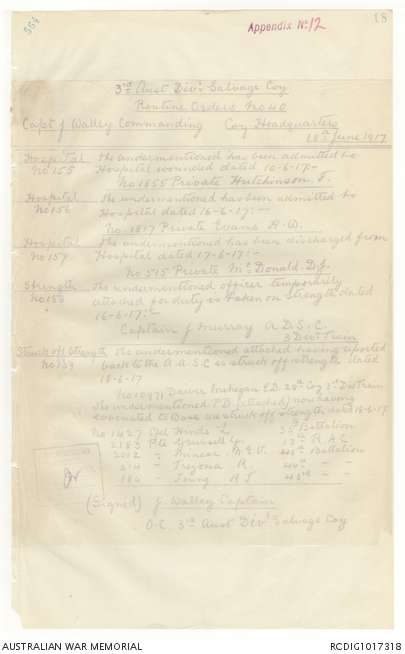 554
Appendix No 12
18
3rd Aust Divl Salvage Coy
Routine Orders No 40
Capt J Walley Commanding Coy Headquarters
18th June 1917
Hospital the undermentioned has been admitted to
No 155 Hospital wounded dated 10-6-17:-
No 1855 Private Hutchinson. F.
Hospital the undermentioned has been admitted to
No 156 Hospital dated 16-6-17:-
No 1817 Private Evans. A. D.
Hospital the undermentioned has been discharged from
No 157 Hospital dated 17-6-17:-
No 515 Private McDonald. D.J.
Strength the undermentioned officer temporarily
No 158 attached for duty is taken on strength dated
16-6-17:-
Captain J Murray A.D.S.C.
3 Divl Train
Struck off Strength the undermentioned attached having reported
back to the A.A.S.C is struck off strength dated
18-6-17
No 10971 Driver E.D. 29th Coy 3rd Div Train
the undermentioned P.B. (attached) now having
evacuated to Base are struck off strength dated 18-6-17
No 1427 Cpl Hinds 35th Battalion
2183 Pte
2002 " A.E.V. 42nd Battalion
214 " Trezona R. 40th " "
180 " Young 43rd " "
(Signed) J Walley Captain
O.C. 3rd Aust Divl Salvage Coy
AUSTRALIAN WAR MEMORIAL
RCDIG1017318